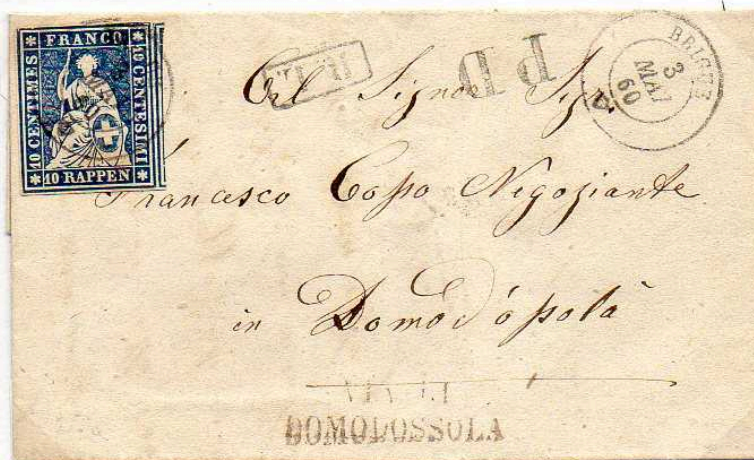 FRANCO
10 CENTIMES
10 CENTESIMI
10 RAPPEN
R.L.
PD
BRIGUE
3
MAI
60
Al Signor Sigr.
Francesco Coſso Negoziante
in Domod'óſsola
DOMODOSSOLA